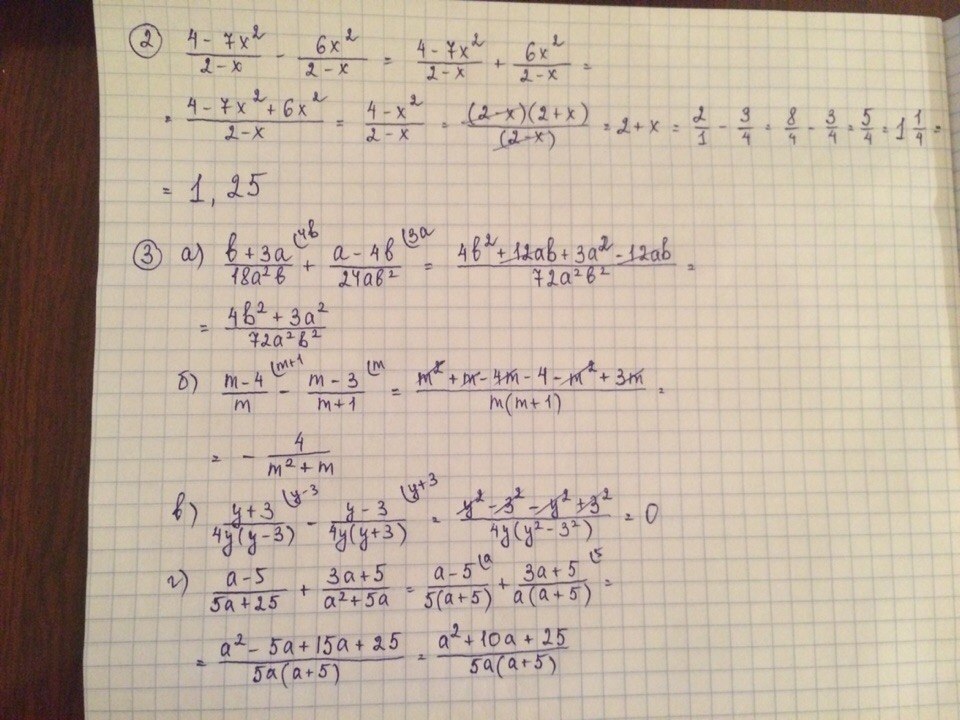 2 (4-7x²)/(2-x) - 6x²/(2-x) = (4-7x²)/(2-x) + 6x²/(2-x) =
= (4-7x²+6x²)/(2-x) = (4-x²)/(2-x) = ((2-x)(2+x))/((2-x)) = 2+x = 2/1 - 3/4 = 8/4 - 3/4 = 5/4 = 1 1/4 =
= 1,25
3 а) (b+3a)/(18a²b) (4b + (a-4b)/(24ab²) (3a = (4b²+12ab+3a²-12ab)/(72a²b²) =
= (4b²+3a²)/(72a²b²)
б) (m-4)/m (m+1 - (m-3)/(m+1) (m = (m²+m-4m-4-m²+3m)/(m(m+1)) =
= - 4/(m²+m)
в) (y+3)/(4y(y-3)) (y-3 - (y-3)/(4y(y+3)) (y+3 = (y²-3²-y²+3²)/(4y(y²-3²)) = 0
г) (a-5)/(5a+25) + (3a+5)/(a²+5a) = (a-5)/(5(a+5)) (a + (3a+5)/(a(a+5)) (5 =
= (a²-5a+15a+25)/(5a(a+5)) = (a²+10a+25)/(5a(a+5))